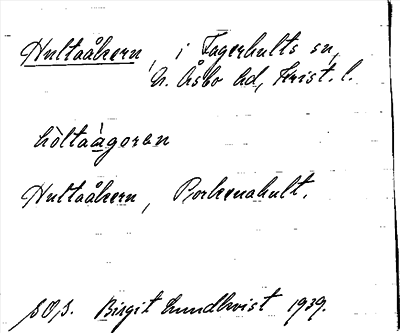 Hultaåkern, i Fagerhults sn,
N. Åsbo hd, Krist. l.
hòltaàgorən
Hultaåkern, Porkenahult.
SOS. Birgit Lundkvist 1939.